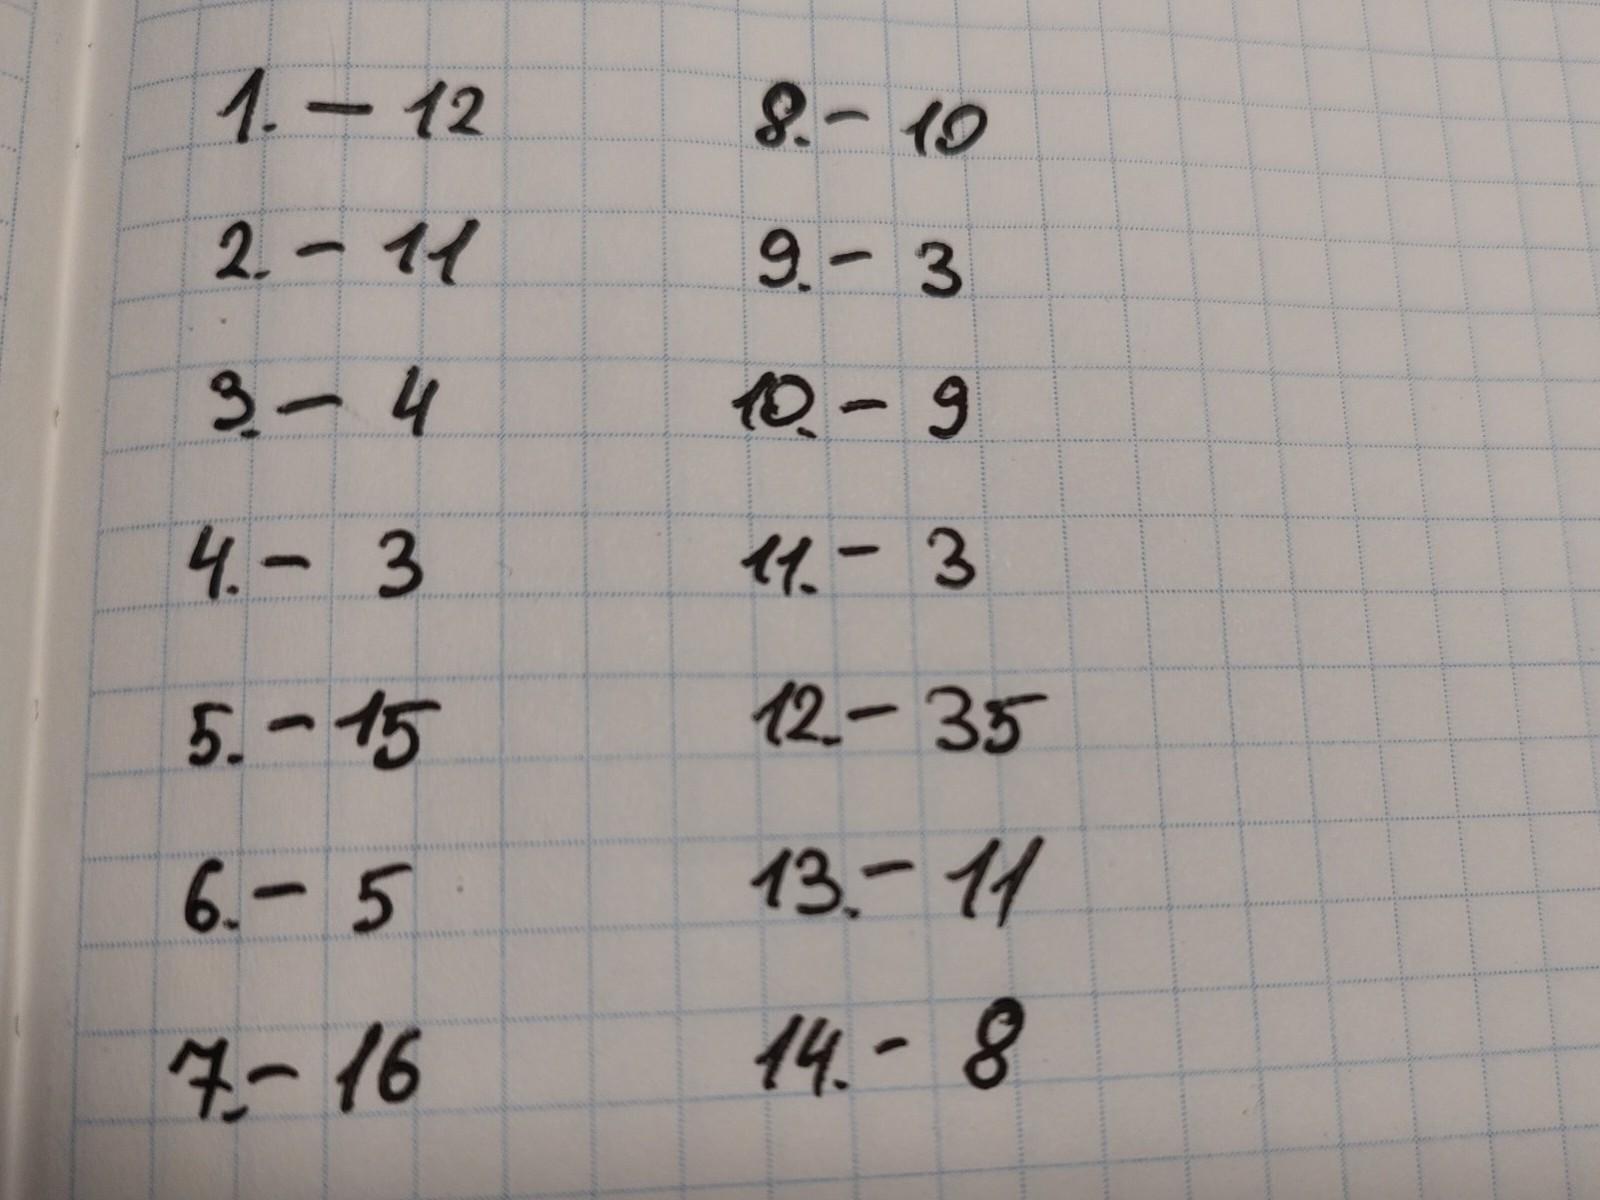 1. - 12
2. - 11
3. - 4
4. - 3
5. - 15
6. - 5
7. - 16
8. - 10
9. - 3
10. - 9
11. - 3
12. - 35
13. - 11
14. - 8